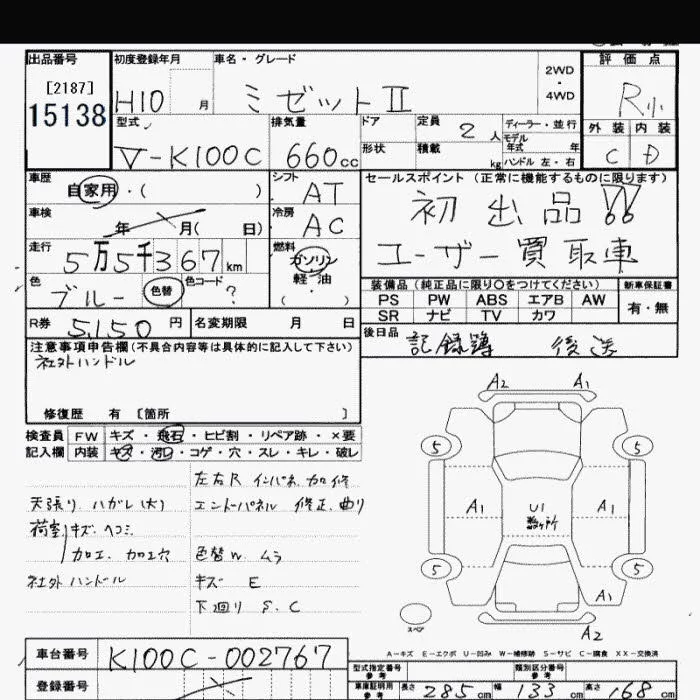 出品番号 初度登録年月 車名・グレード 評価点
[2187] 2WD・4WD
15138 H10 月 ミゼットⅡ R小
型式 排気量 ドア 定員 2人 ディーラー・並行 外装 内装
モデル年式 年
V-K100C 660cc 形状 積載 kg ハンドル 左・右 C D
車歴 シフト セールスポイント(正常に機能するものに限ります)
自家用・( ) AT 初出品!!
車検 冷房
年 月( 日) AC ユーザー買取車
走行 燃料
5万5千367km ガソリン
色 色コード 軽・油 装備品(純正品に限り○をつけてください) 新車保証書
ブルー 色替 ? ( ) PS PW ABS エアB AW 有・無
R券 5,150円 名変期限 月 日 SR ナビ TV カワ
注意事項申告欄(不具合内容等は具体的に記入して下さい) 後日品 記録簿 後送
社外ハンドル
修復歴 有 [箇所 ]
検査員 FW キズ・飛石・ヒビ割・リペア跡・×要
記入欄 内装 キズ・汚レ・コゲ・穴・スレ・キレ・破レ
左右R インパネ 加修
天張り ハガレ(大) エンドーパネル 修正 曲り
荷室 キズ ヘコミ
加工 加工穴 色替W ムラ
社外ハンドル キズ E
下回り S.C
A2 A1
5 5
A1 U1 数ヶ所 A1
5 5
A1
スペア A2
A-キズ E-エクボ U-凹み W-補修跡 S-サビ C-腐食 XX-交換済
車台番号 K100C-002767
型式指定番号 参考 類別区分番号 参考
登録番号 車庫証明用 参考 長さ 285cm 幅 133cm 高さ 168cm